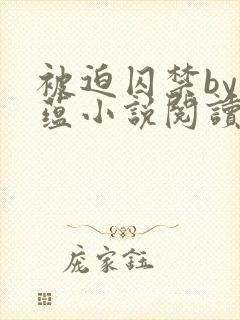 被迫囚禁by
蕴小説閱讀
庞家鈺